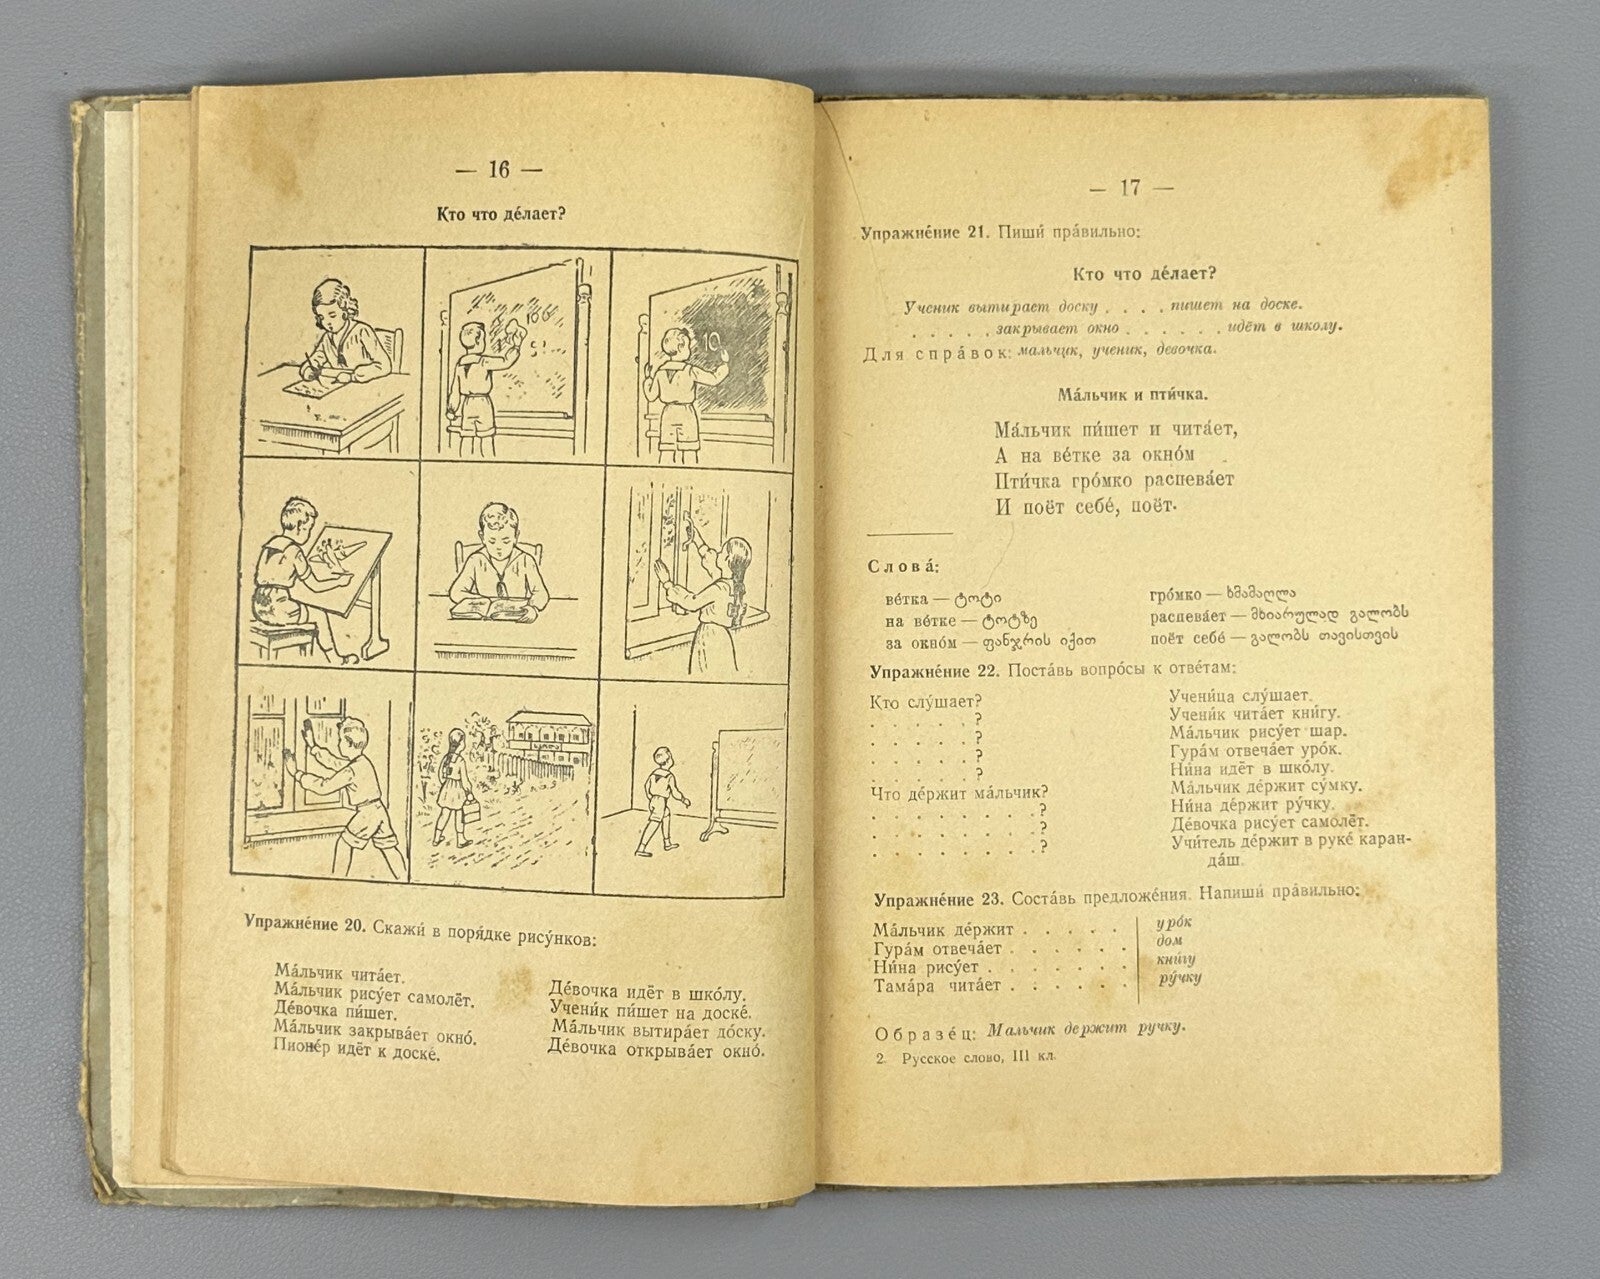 — 16 —
Кто что де́лает?
166
10
Упражне́ние 20. Скажи́ в поря́дке рису́нков:
Ма́льчик чита́ет.
Ма́льчик рису́ет самолёт.
Де́вочка пи́шет.
Ма́льчик закрыва́ет окно́.
Пионе́р идёт к доске́.
Де́вочка идёт в шко́лу.
Учени́к пи́шет на доске́.
Ма́льчик вытира́ет до́ску.
Де́вочка открыва́ет окно́.
— 17 —
Упражне́ние 21. Пиши́ пра́вильно:
Кто что де́лает?
Ученик вытирает доску . . . . пишет на доске.
. . . . . закрывает окно . . . . . . идёт в школу.
Для спра́вок: мальчик, ученик, девочка.
Ма́льчик и пти́чка.
Ма́льчик пи́шет и чита́ет,
А на ве́тке за окно́м
Пти́чка гро́мко распева́ет
И поёт себе́, поёт.
Слова́:
ве́тка — ტოტი
на ве́тке — ტოტზე
за окно́м — ფანჯრის იქით
гро́мко — ხმამაღლა
распева́ет — მხიარულად გალობს
поёт себе́ — გალობს თავისთვის
Упражне́ние 22. Поста́вь вопро́сы к отве́там:
Кто слу́шает?
. . . . . . ?
. . . . . . ?
. . . . . . ?
. . . . . . ?
Что де́ржит ма́льчик?
. . . . . . . . . ?
. . . . . . . . . ?
. . . . . . . . . ?
Учени́ца слу́шает.
Учени́к чита́ет кни́гу.
Ма́льчик рису́ет шар.
Гура́м отвеча́ет уро́к.
Ни́на идёт в шко́лу.
Ма́льчик де́ржит су́мку.
Ни́на де́ржит ру́чку.
Де́вочка рису́ет самолёт.
Учи́тель де́ржит в руке́ каран-
да́ш.
Упражне́ние 23. Соста́вь предложе́ния. Напиши́ пра́вильно:
Ма́льчик де́ржит . . . . .
Гура́м отвеча́ет . . . . . .
Ни́на рису́ет . . . . . . .
Тама́ра чита́ет . . . . . .
уро́к
дом
кни́гу
ру́чку
Образе́ц: Мальчик держит ручку.
2. Русское слово, III кл.